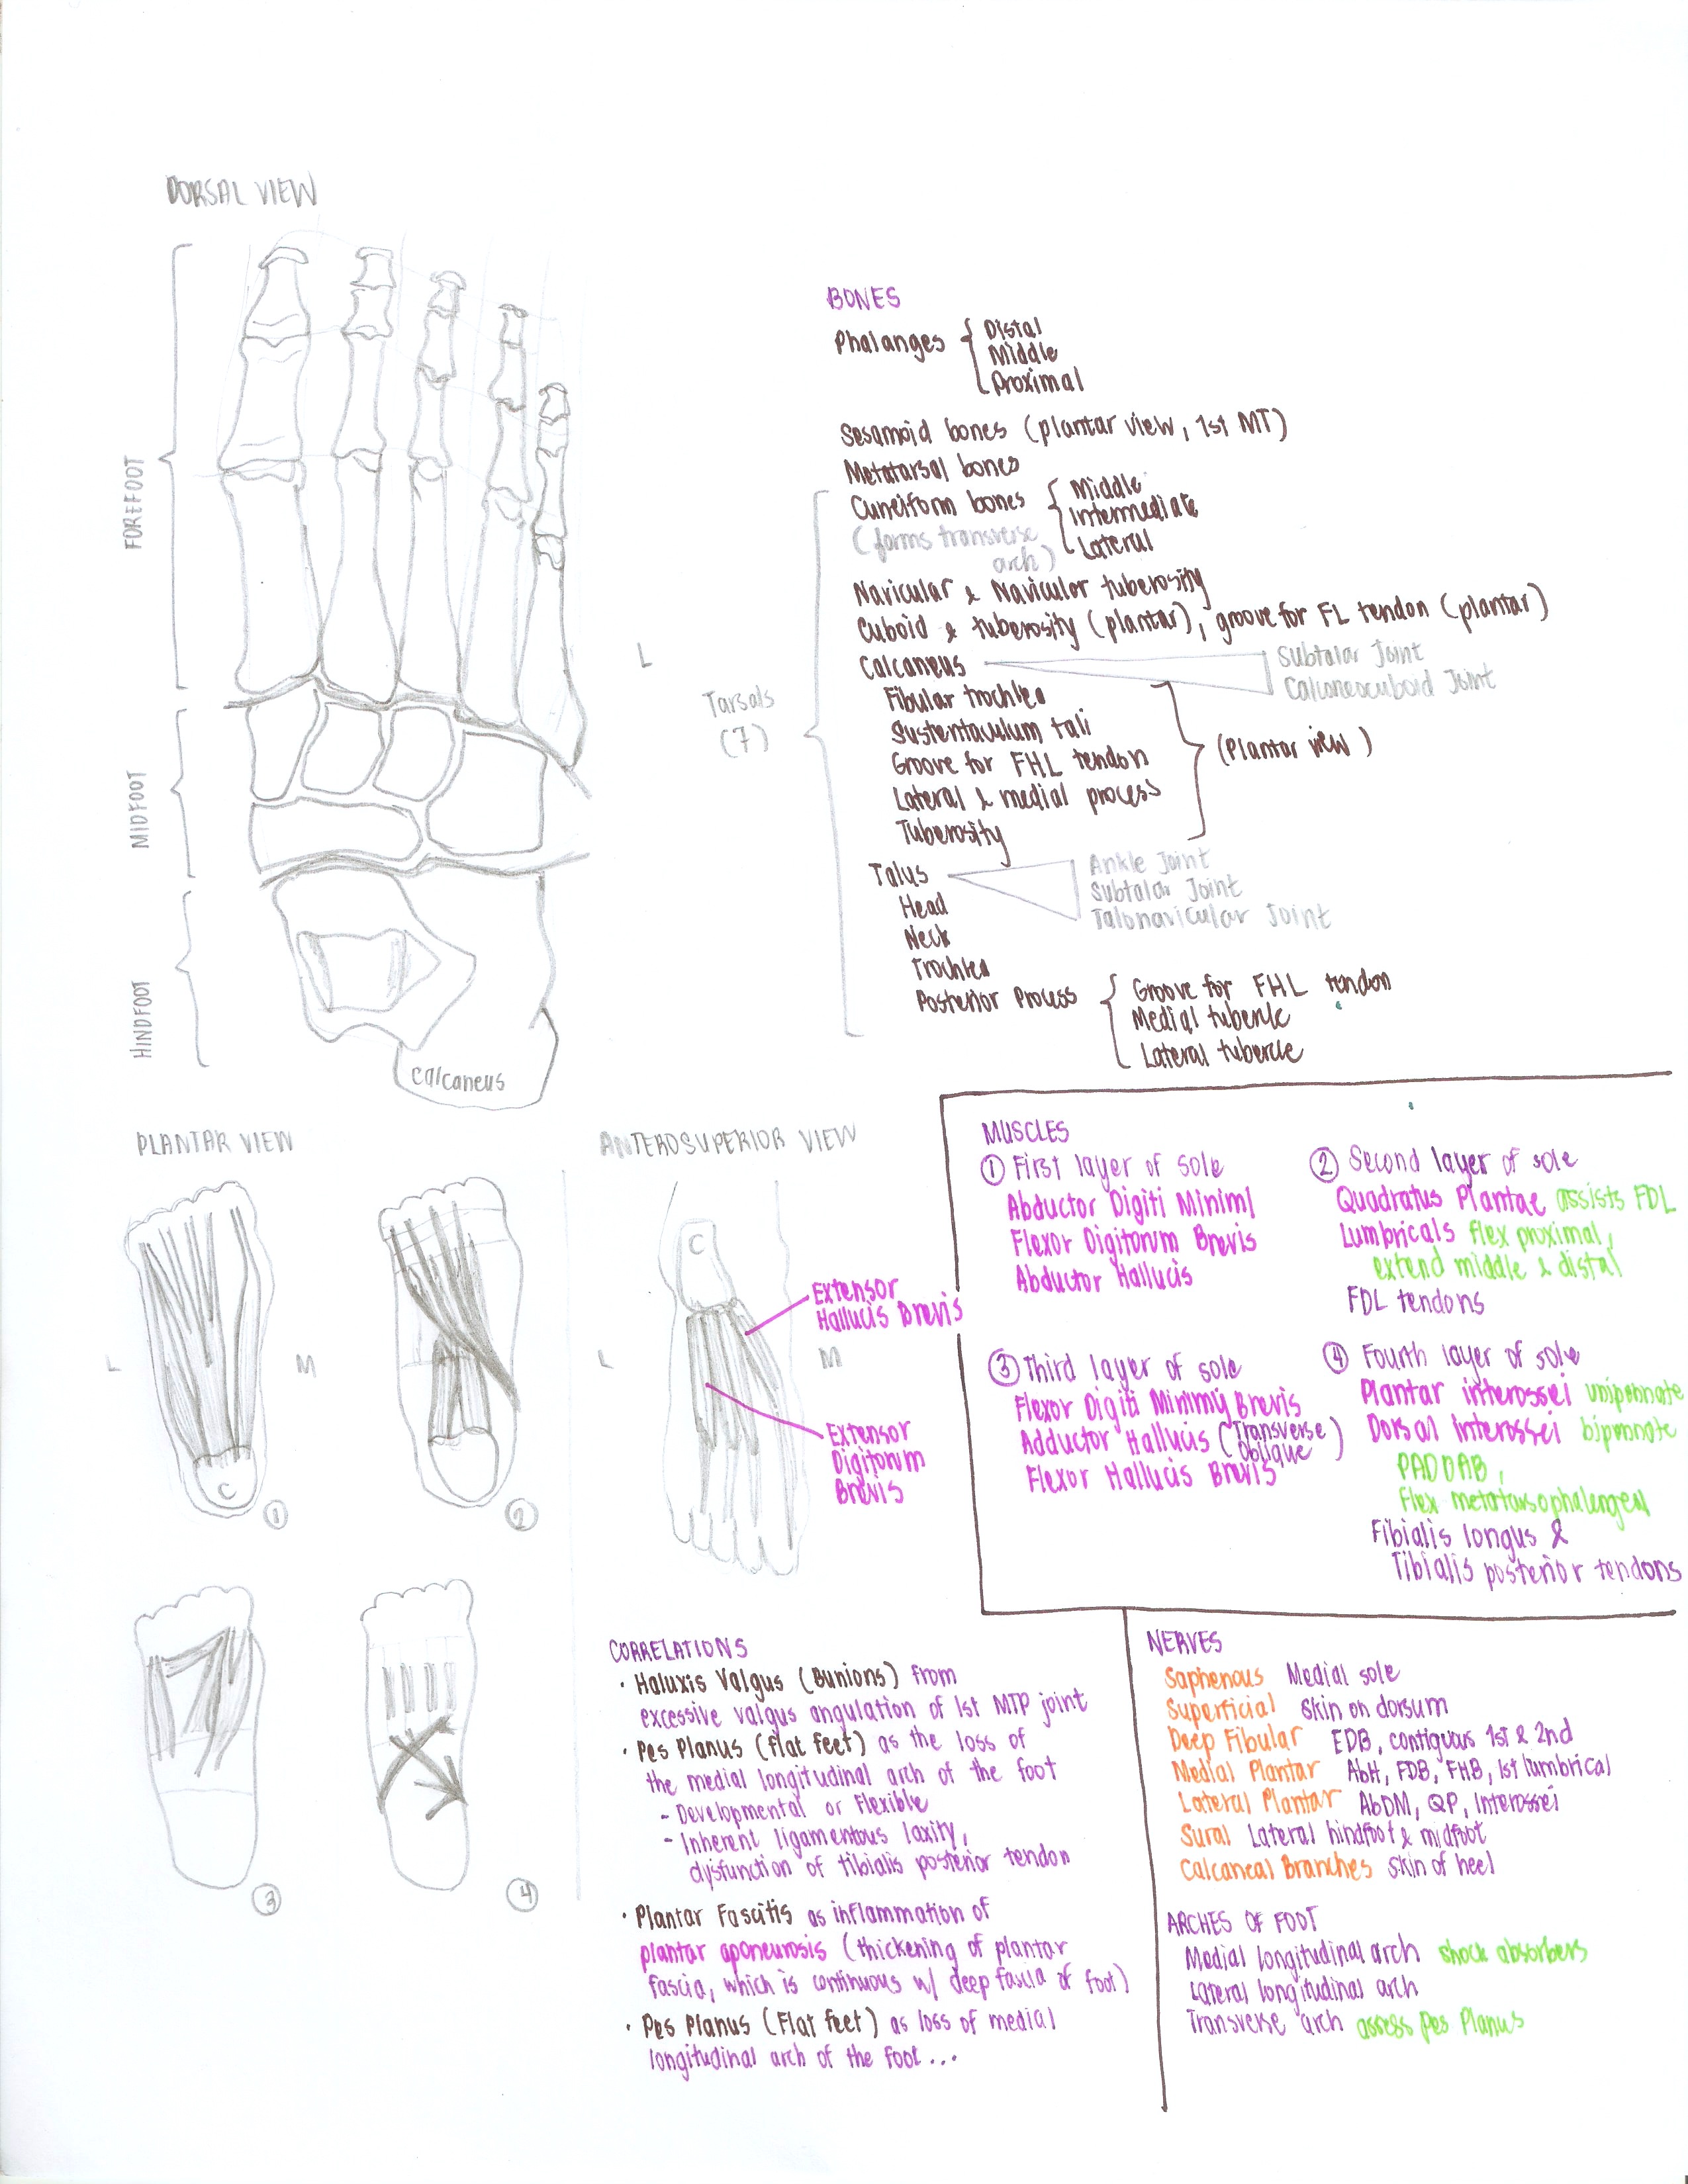 DORSAL VIEW
FOREFOOT
MIDFOOT
HINDFOOT
L
calcaneus
BONES
Phalanges { Distal
Middle
Proximal
Sesamoid bones (plantar view, 1st MT)
Metatarsal bones
Tarsals
(7)
Cuneiform bones { Middle
Intermediate
Lateral
(forms transverse
arch)
Navicular & Navicular tuberosity
Cuboid & tuberosity (plantar), groove for FL tendon (plantar)
Calcaneus
Subtalar Joint
Calcaneocuboid Joint
Fibular trochlea
Sustentaculum tali
Groove for FHL tendon
Lateral & medial process
Tuberosity
(Plantar view)
Talus
Ankle Joint
Subtalar Joint
Talonavicular Joint
Head
Neck
Trochlea
Posterior Process { Groove for FHL tendon
Medial tubercle
Lateral tubercle
PLANTAR VIEW
L
M
C
①
②
③
④
ANTEROSUPERIOR VIEW
C
L
M
Extensor
Hallucis Brevis
Extensor
Digitorum
Brevis
MUSCLES
① First layer of sole
Abductor Digiti Miniml
Flexor Digitorum Brevis
Abductor Hallucis
② Second layer of sole
Quadratus Plantae assists FDL
Lumbricals flex proximal,
extend middle & distal
FDL tendons
③ Third layer of sole
Flexor Digiti Minimy Brevis
Adductor Hallucis (Transverse
Oblique)
Flexor Hallucis Brevis
④ Fourth layer of sole
Plantar interossei unipennate
Dorsal Interossei bipennate
PAD DAB,
Flex metatarsophalengeal
Fibialis longus &
Tibialis posterior tendons
CORRELATIONS
· Haluxis Valgus (Bunions) from
excessive valgus angulation of 1st MTP joint
· Pes Planus (flat feet) as the loss of
the medial longitudinal arch of the foot
- Developmental or Flexible
- Inherent ligamentous laxity,
dysfunction of tibialis posterior tendon
· Plantar Fascitis as inflammation of
plantar aponeurosis (thickening of plantar
fascia, which is continuous w/ deep fascia of foot)
· Pes Planus (Flat feet) as loss of medial
longitudinal arch of the foot...
NERVES
Saphenous Medial sole
Superficial skin on dorsum
Deep Fibular EDB, contiguous 1st & 2nd
Medial Plantar AbH, FDB, FHB, 1st lumbrical
Lateral Plantar AbDM, QP, Interossei
Sural Lateral hindfoot & midfoot
Calcaneal Branches skin of heel
ARCHES OF FOOT
Medial longitudinal arch shock absorbers
Lateral longitudinal arch
Transverse arch assess Pes Planus